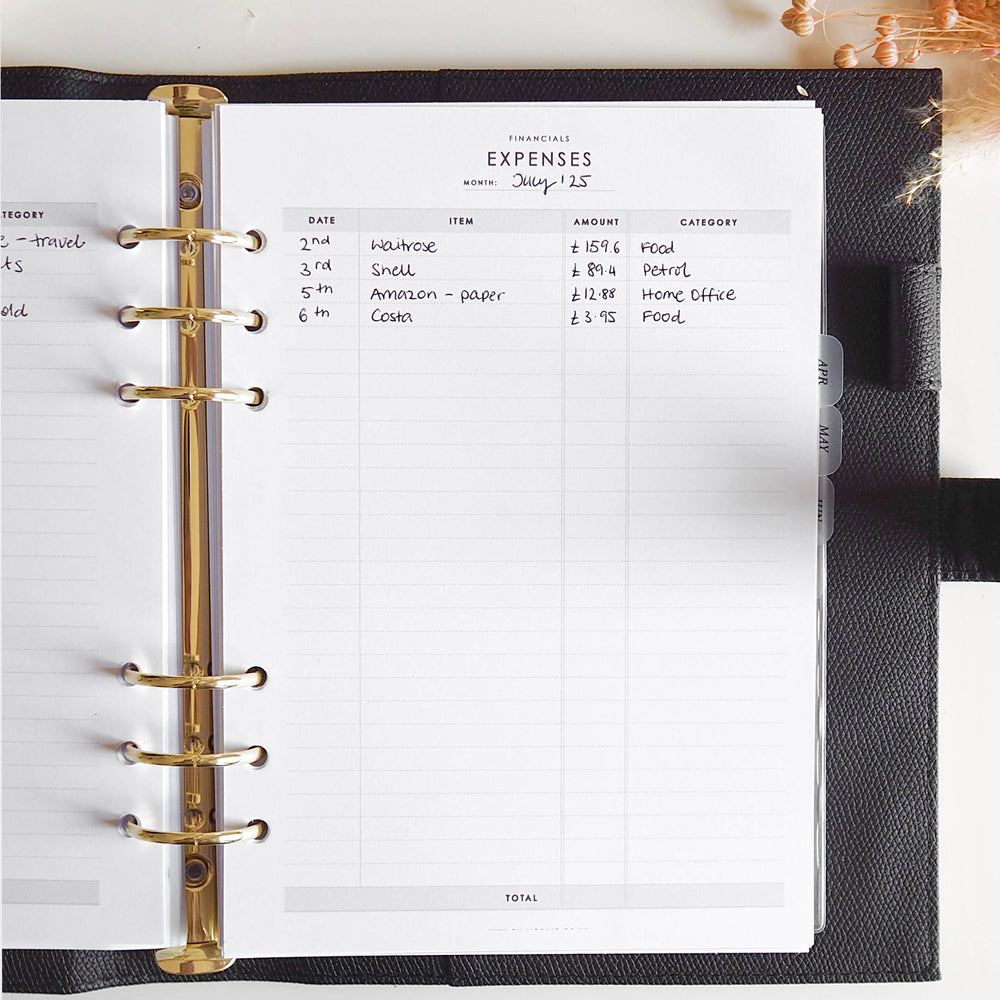 TEGORY
e - travel
ts
old
FINANCIALS
EXPENSES
MONTH: July '25
DATE ITEM AMOUNT CATEGORY
2nd Waitrose £159.6 Food
3rd Shell £89.4 Petrol
5th Amazon - paper £12.88 Home Office
6th Costa £3.95 Food
APR
MAY
JUN
TOTAL